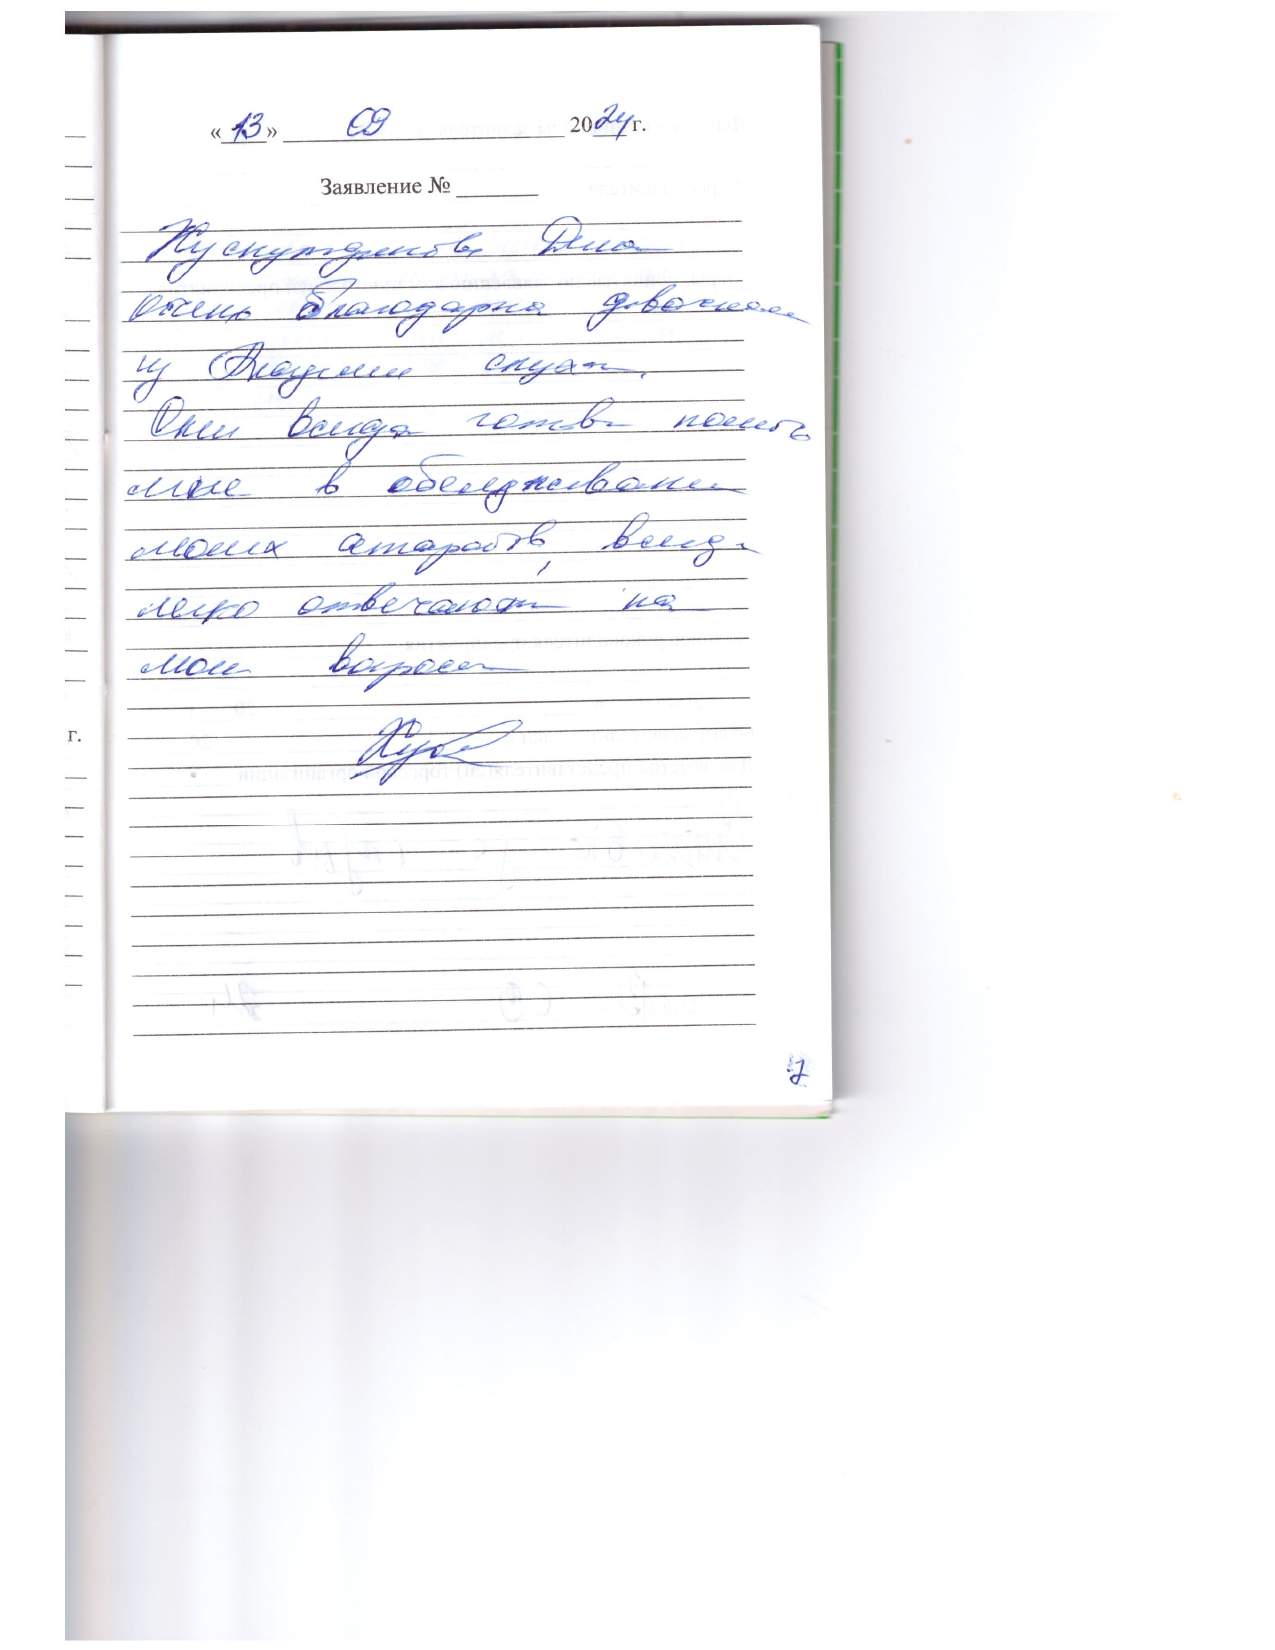 « 13 » 09 2024 г.
Заявление №
очень благодарна девочкам
из Академии слуха.
Они всегда готовы помочь
мне в обслуживании
моих аппаратов, всегда
легко отвечают на
мои вопросы
г.
7